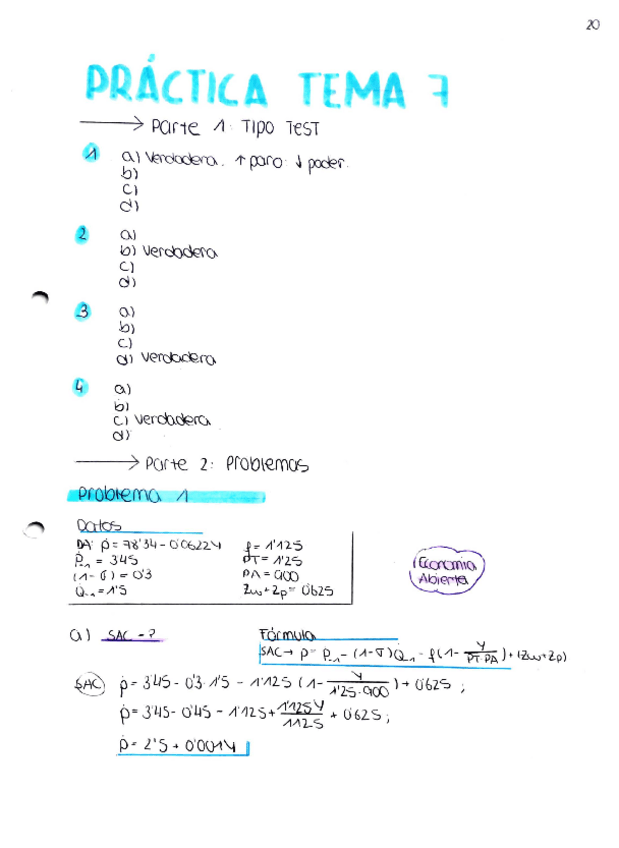 20
PRÁCTICA TEMA 7
→ Parte 1: TIPO TEST
1 a) Verdadera. ↑ paro ↓ poder.
b)
c)
d)
2 a)
b) Verdadera
c)
d)
3 a)
b)
c)
d) Verdadera
4 a)
b)
c) Verdadera
d)
→ Parte 2: Problemas
Problema 1
Datos
DA: Ṗ = 78'34 - 0'0622Y f = 1'125
Ṗ₋₁ = 3'45 PT = 1'25
(1-σ) = 0'3 PA = 900
Q̇₋₁ = 1'5 Zw + Zp = 0'625
Economía
Abierta
a) SAC = ? Fórmula
SAC → Ṗ = Ṗ₋₁ - (1-σ)Q̇₋₁ - f(1 - Y/PT·PA) + (Zw+Zp)
SAC Ṗ = 3'45 - 0'3·1'5 - 1'125 (1 - Y/1'25·900) + 0'625 ;
Ṗ = 3'45 - 0'45 - 1'125 + 1'125Y/1125 + 0'625 ;
Ṗ = 2'5 + 0'001Y